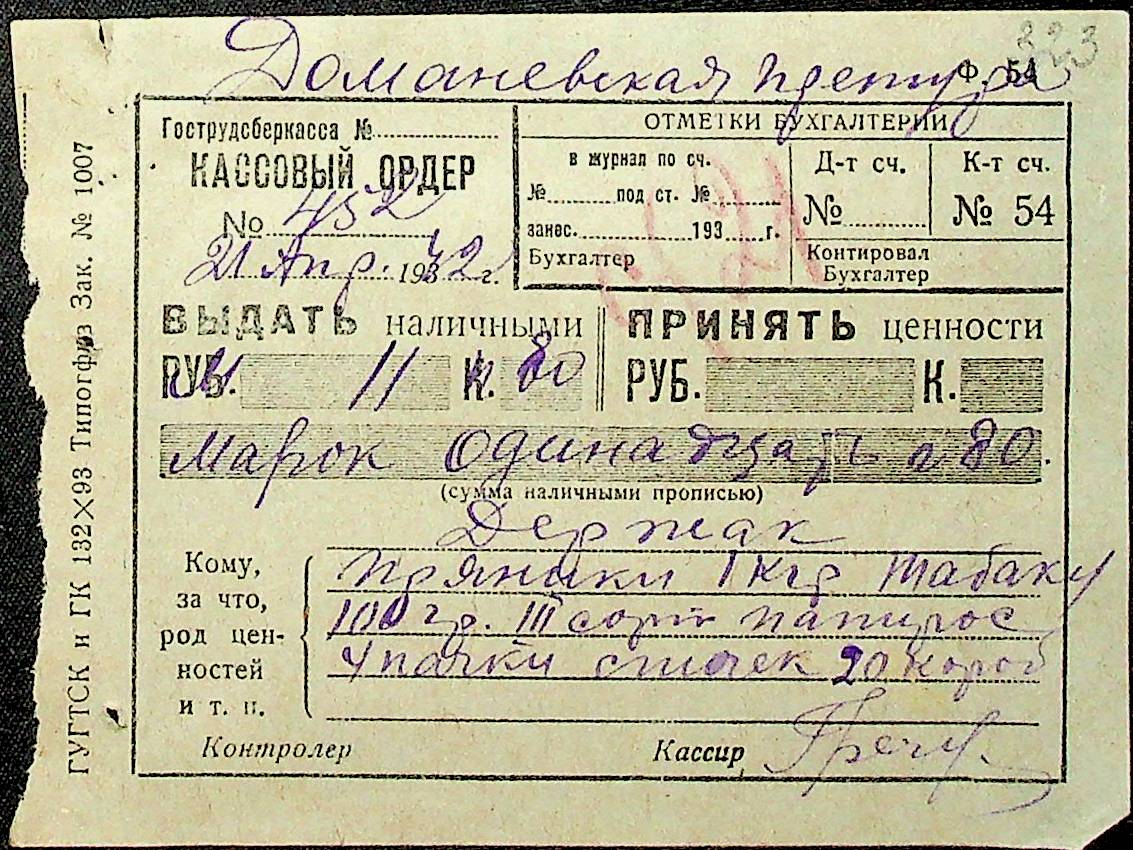 223
Доманевская претура
Ф. 54
Гострудсберкасса №
КАССОВЫЙ ОРДЕР
№ 452
21 Апр. 1942 г.
ОТМЕТКИ БУХГАЛТЕРИИ
в журнал по сч.
№ под ст. №
занес. 193 г.
Бухгалтер
Д-т сч.
№
К-т сч.
№ 54
Контировал
Бухгалтер
ВЫДАТЬ наличными
РУБ. 11 К. 80
ПРИНЯТЬ ценности
РУБ. К.
Марок одинадцать 80.
(сумма наличными прописью)
Держак
Кому,
за что,
род цен-
ностей
и т. п.
Пряники 1 кгр табаку
100 гр. III сорт папирос
4 пачки спичек 20 короб
Контролер
Кассир
ГУГТСК и ГК 132×93 Типогфиз Зак. № 1007